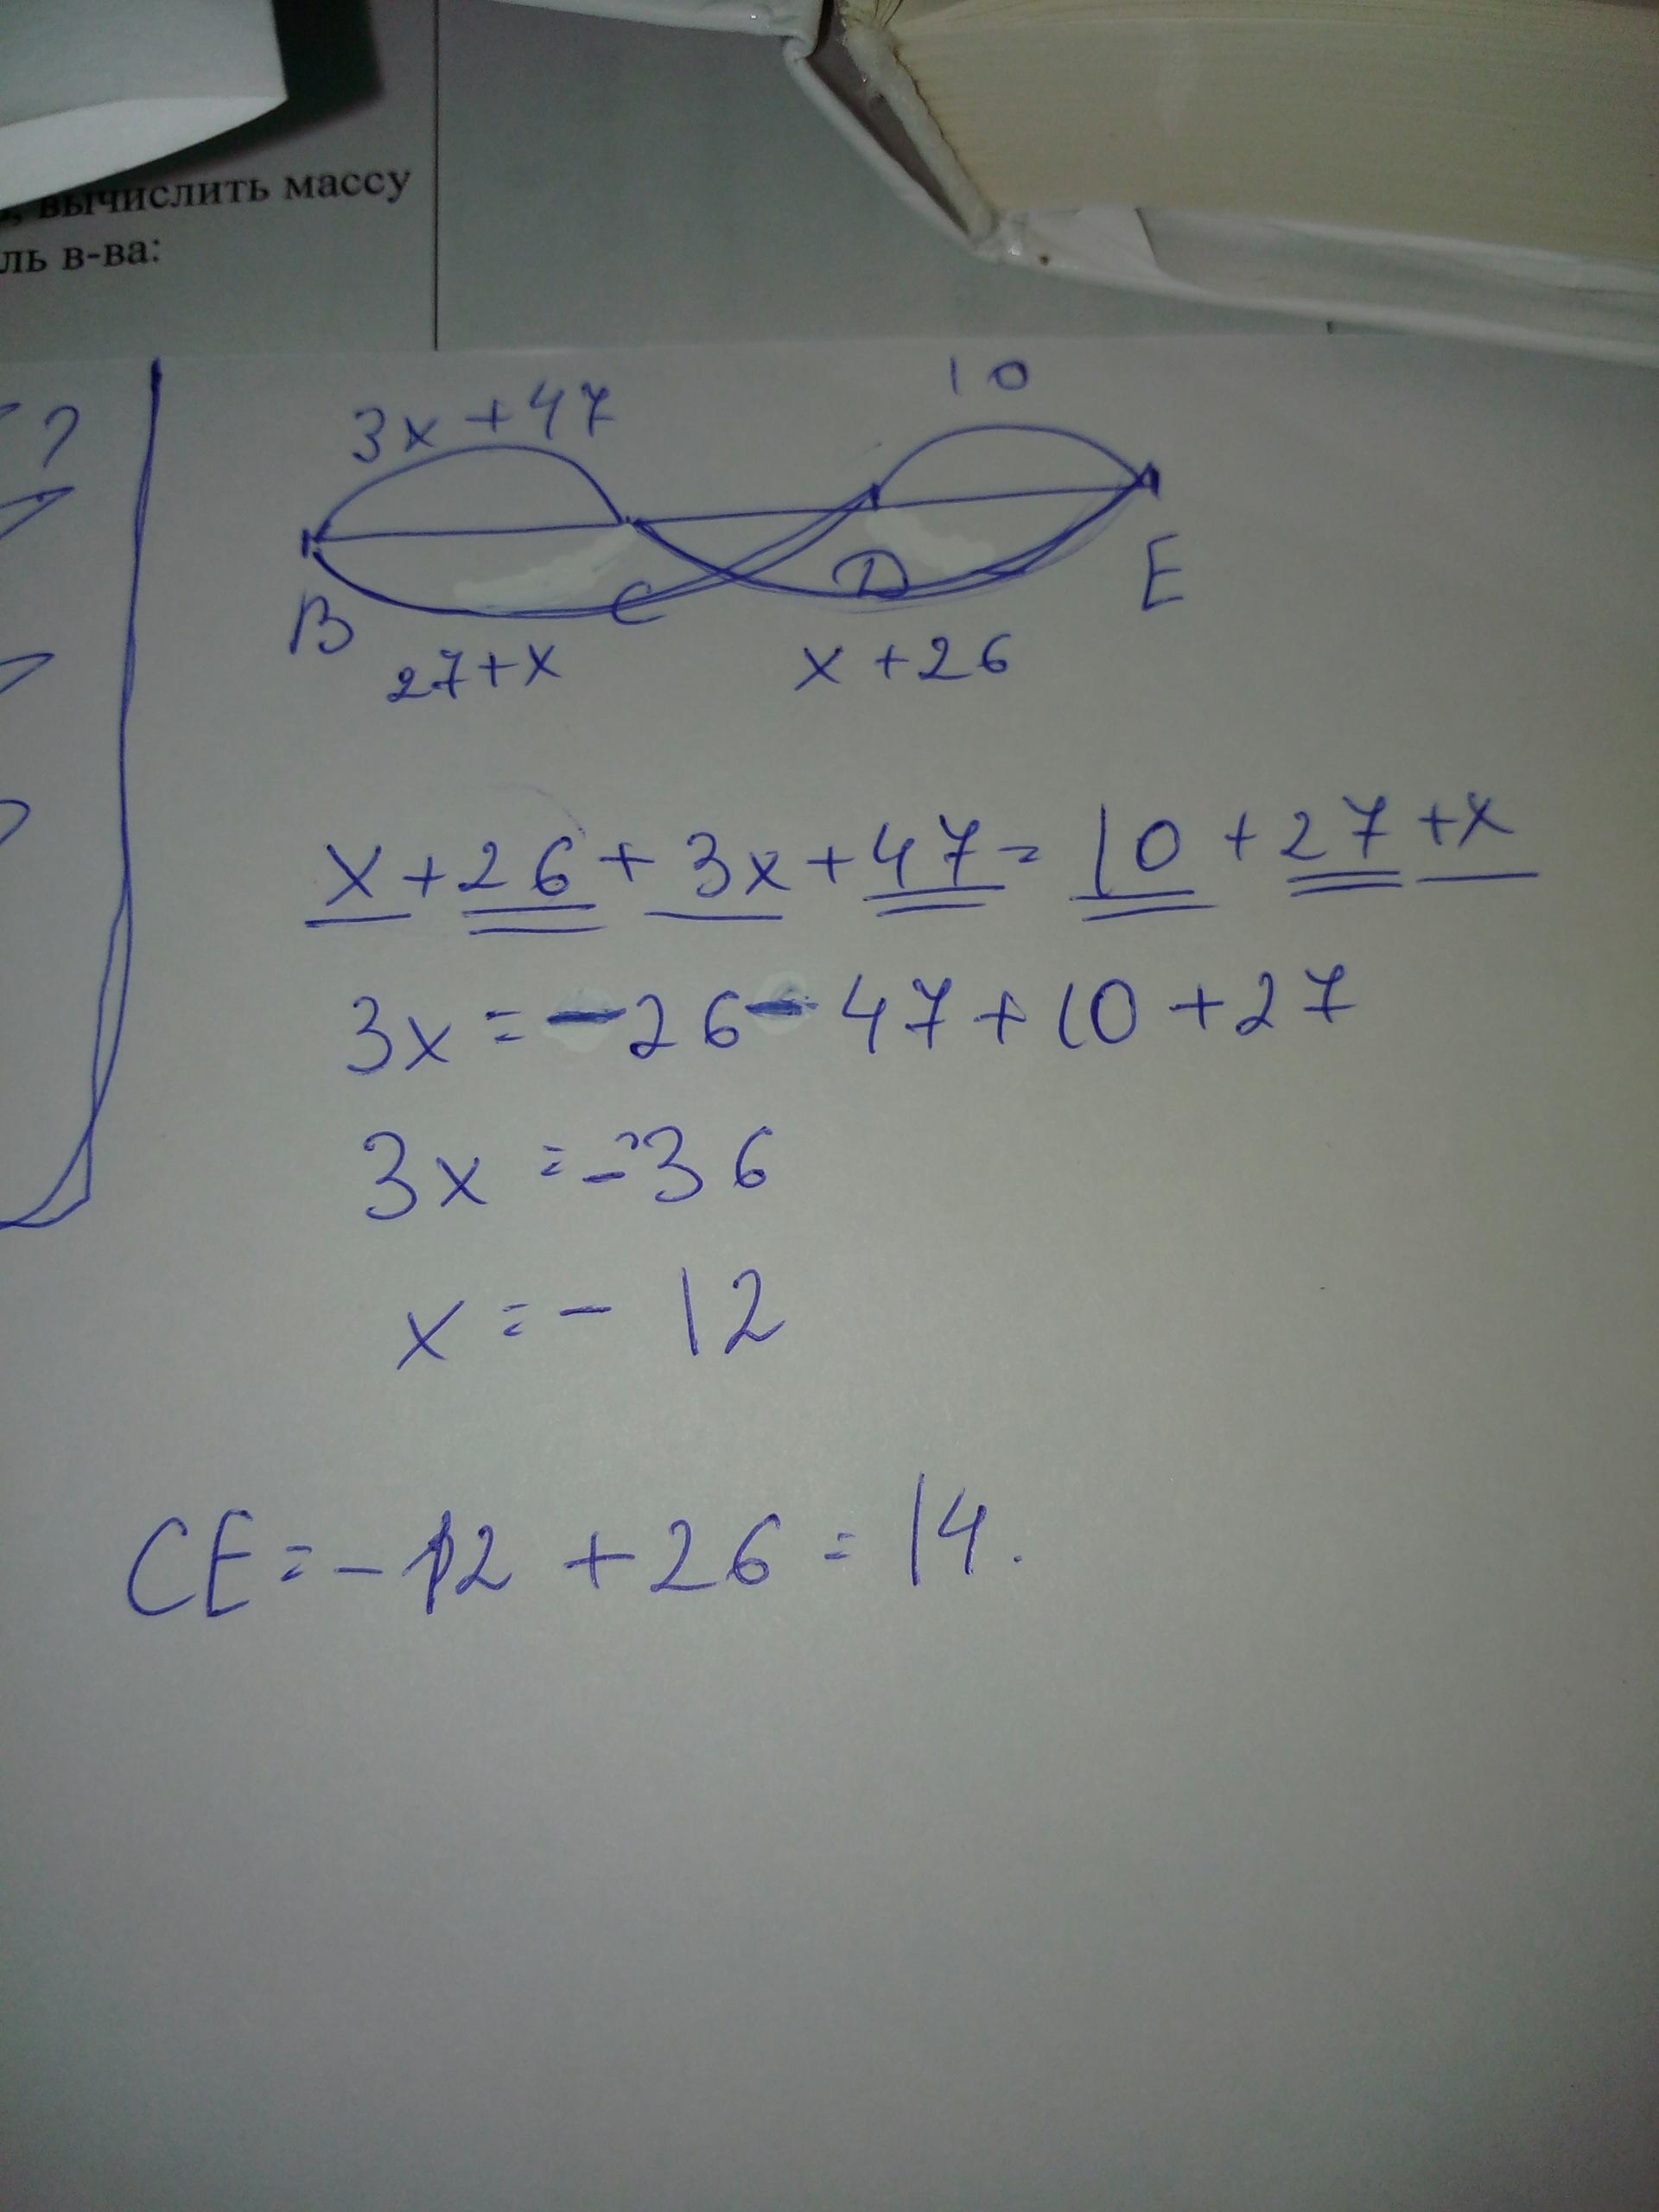 вычислить массу
ль в-ва:
?
3x + 47
10
B
C
D
E
27+x
x + 26
x + 26 + 3x + 47 = 10 + 27 + x
3x = - 26 - 47 + 10 + 27
3x = -36
x = - 12
CE = - 12 + 26 = 14.